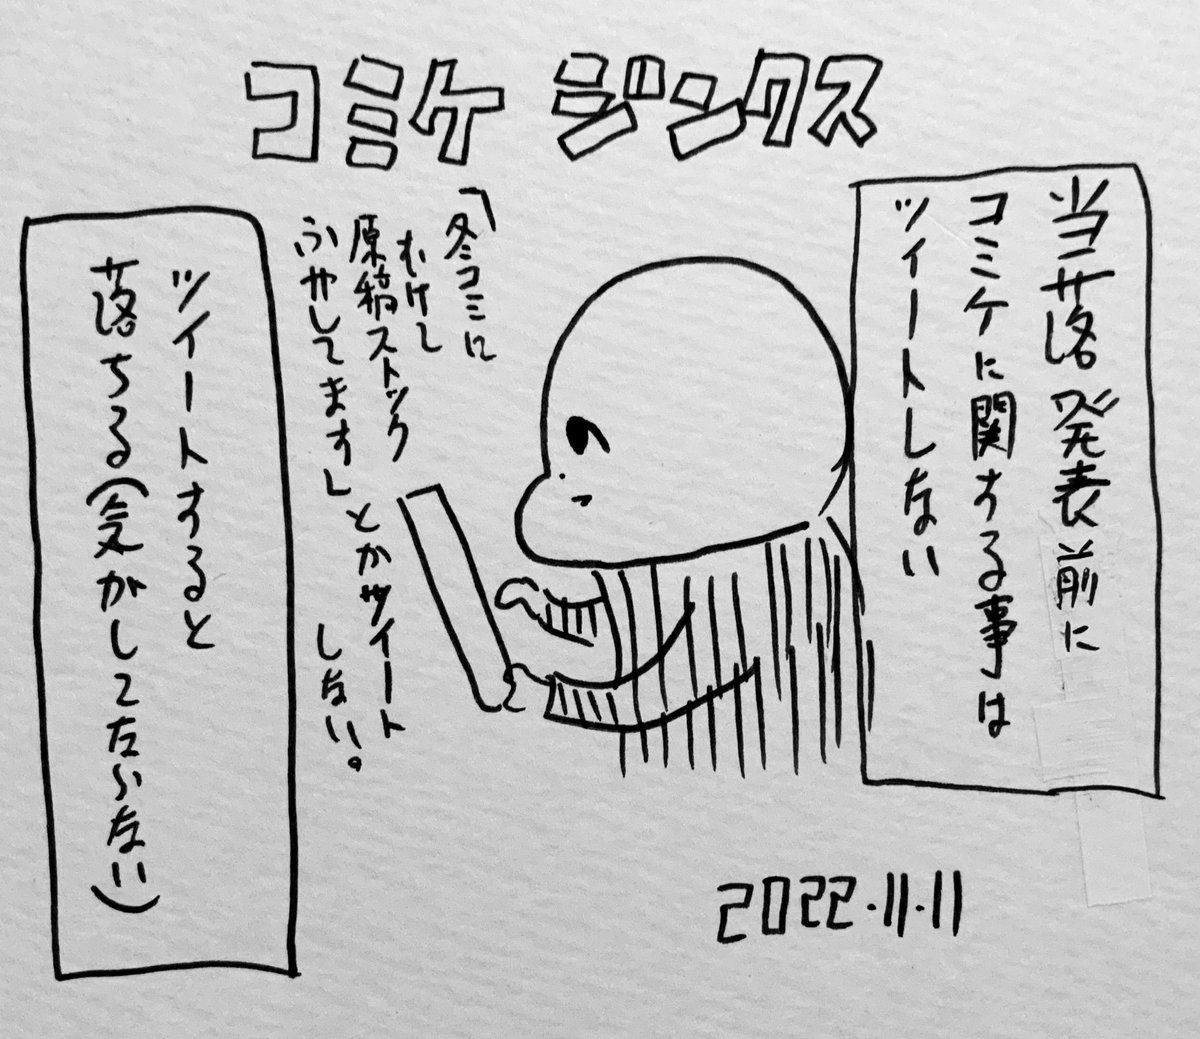 コミケ ジンクス
当落発表前に
コミケに関する事は
ツイートしない
「冬コミに
むけて
原稿ストック
ふやしてます」とかツイート
しない。
ツイートすると
落ちる(気がしてたらない)
2022.11.11